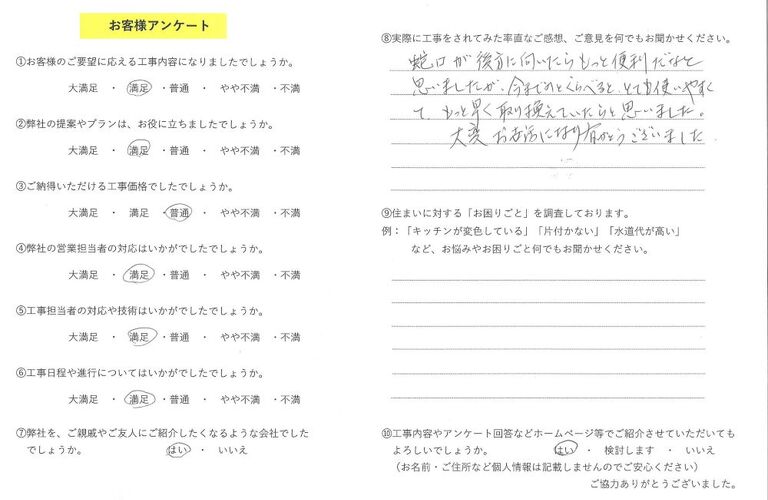 お客様アンケート
①お客様のご要望に応える工事内容になりましたでしょうか。
大満足 ・ 満足 ・普通 ・ やや不満 ・不満
②弊社の提案やプランは、お役に立ちましたでしょうか。
大満足 ・ 満足 ・普通 ・ やや不満 ・不満
③ご納得いただける工事価格でしたでしょうか。
大満足 ・ 満足 ・普通 ・ やや不満 ・不満
④弊社の営業担当者の対応はいかがでしたでしょうか。
大満足 ・ 満足 ・普通 ・ やや不満 ・不満
⑤工事担当者の対応や技術はいかがでしたでしょうか。
大満足 ・ 満足 ・普通 ・ やや不満 ・不満
⑥工事日程や進行についてはいかがでしたでしょうか。
大満足 ・ 満足 ・普通 ・ やや不満 ・不満
⑦弊社を、ご親戚やご友人にご紹介したくなるような会社でした
でしょうか。 はい ・ いいえ
⑧実際に工事をされてみた率直なご感想、ご意見を何でもお聞かせください。
蛇口が後方に向いたらもっと便利だなと
思いましたが、今までのとくらべると、とても使いやすく
て、もっと早く取り換えていたらと思いました。
大変お世話になり有がとうございました
⑨住まいに対する「お困りごと」を調査しております。
例：「キッチンが変色している」「片付かない」「水道代が高い」
など、お悩みやお困りごと何でもお聞かせください。
⑩工事内容やアンケート回答などホームページ等でご紹介させていただいても
よろしいでしょうか。 はい ・ 検討します ・ いいえ
（お名前・ご住所など個人情報は記載しませんのでご安心ください）
ご協力ありがとうございました。